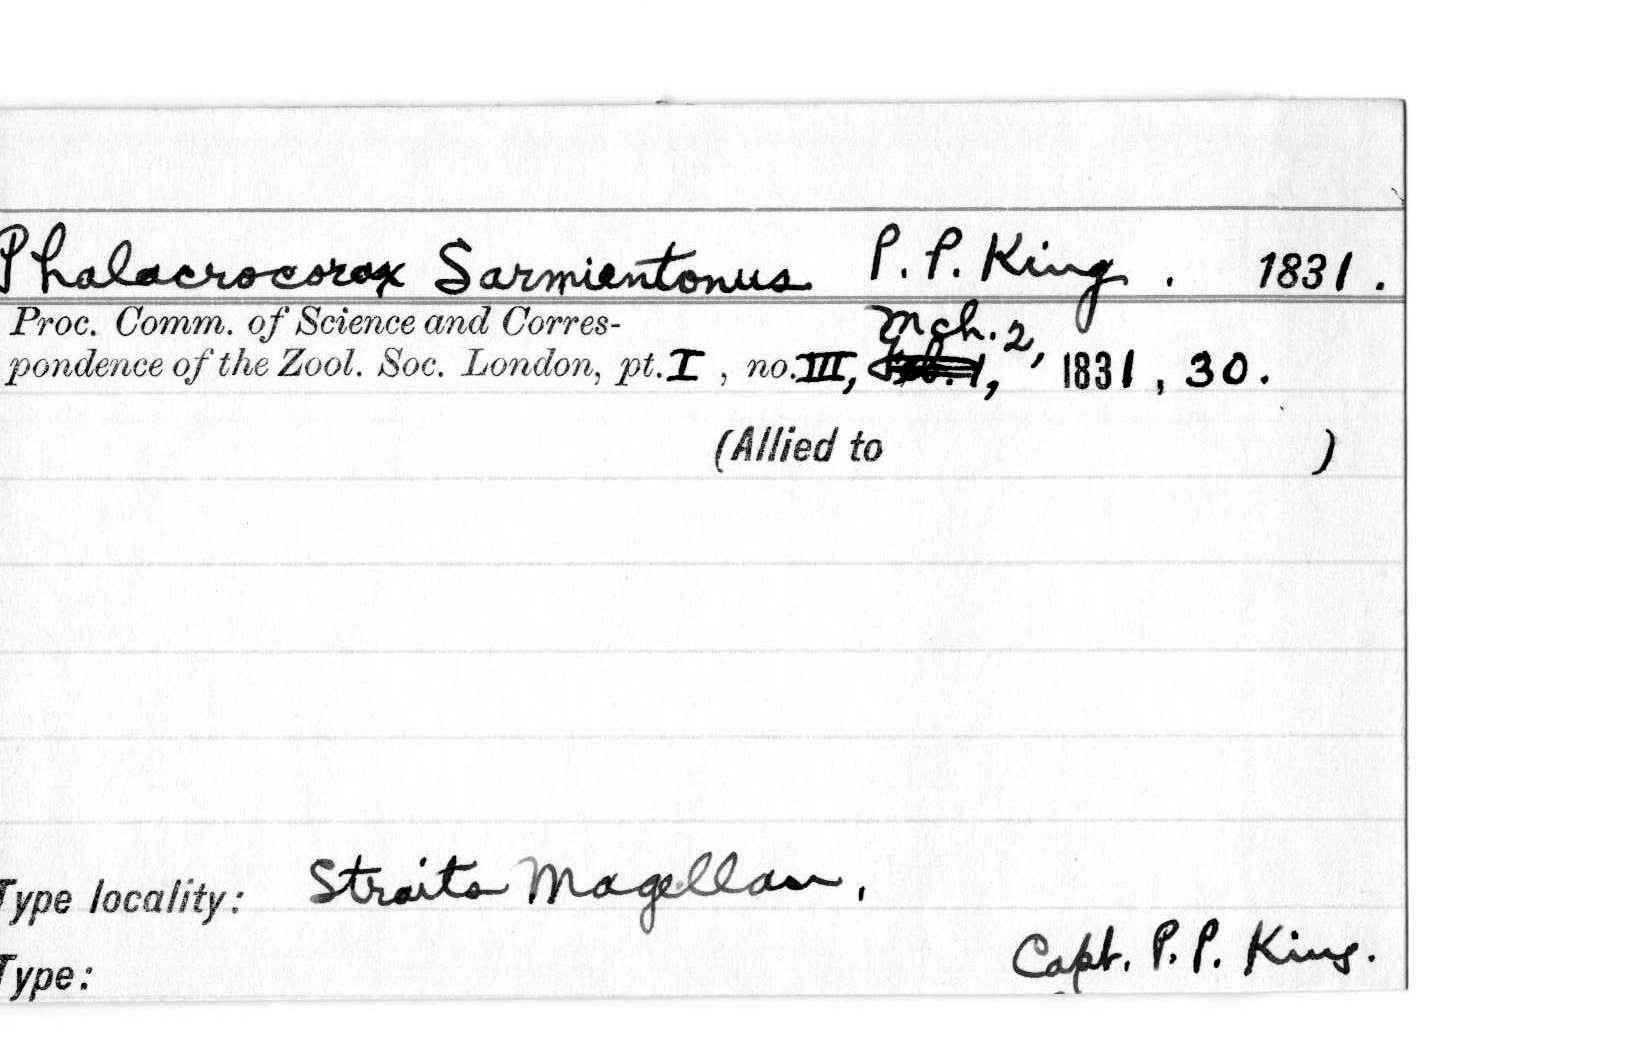 Phalacrocorax Sarmientonus P. P. King. 1831.
Proc. Comm. of Science and Corres-
Mch. 2,
pondence of the Zool. Soc. London, pt. I, no. III, Feb. 1, 1831, 30.
(Allied to )
Type locality: Straits Magellan,
Capt. P. P. King.
Type: